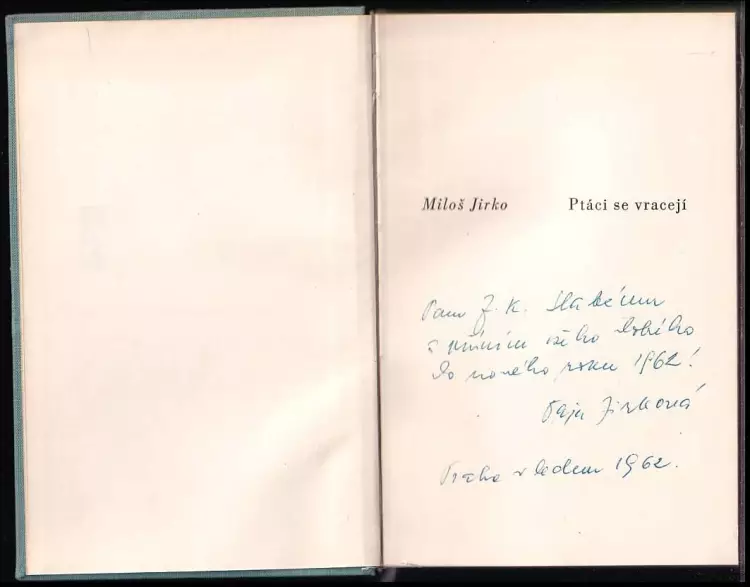 Miloš Jirko Ptáci se vracejí
Panu Z. K. Slabému
s přáním všeho dobrého
do nového roku 1962!
Jirková
Praha v lednu 1962.